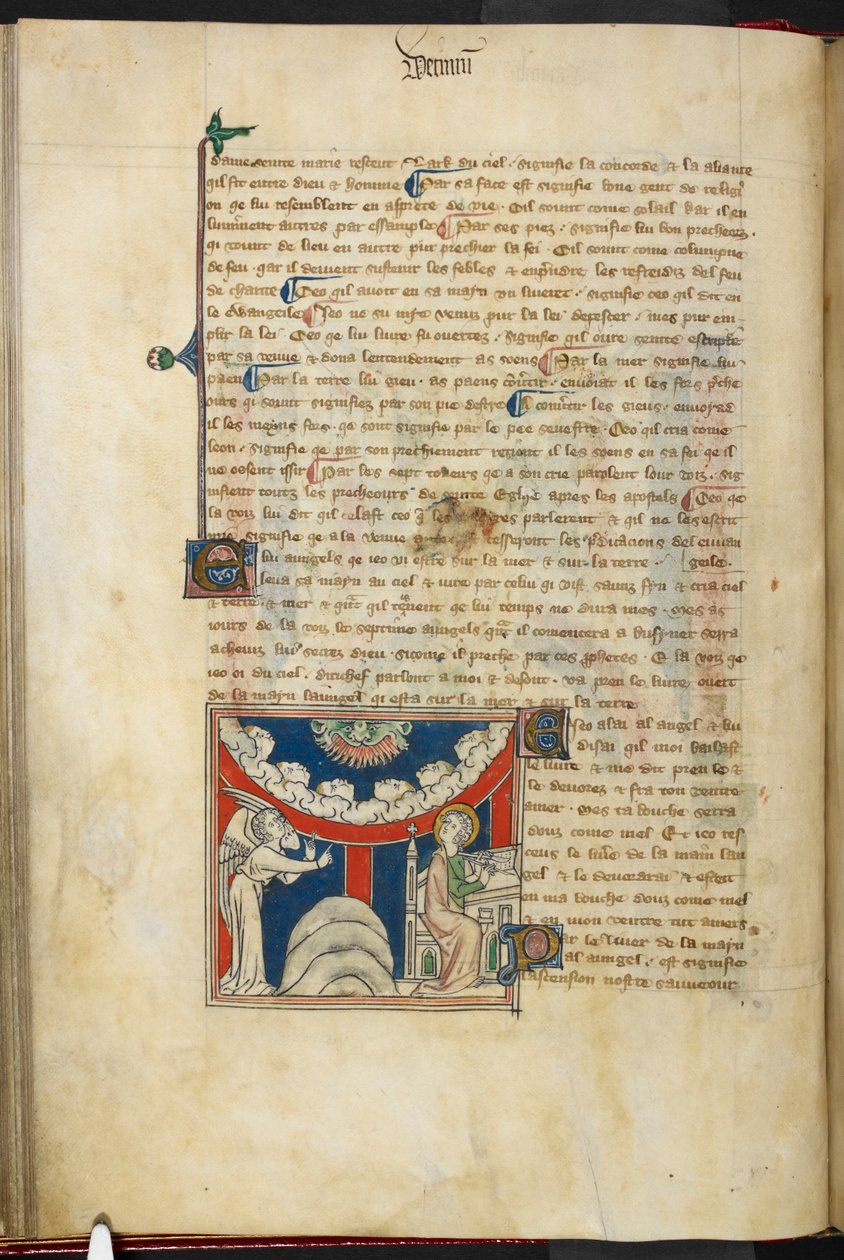 Decimu
dame seinte marie restent Lark du ciel signifie la concorde & la aliance
qil fit entre dieu & homme Par sa face est signifie bone gent de religi
on qe lui resemblent en asprete de vie Cil sount come solail kar il en
luminent autres par essample Par ses piez signifie lui bon precheors
qi vount de lieu en autre pur precher la fei Cil sount come columpne
de feu qar il deivent sustenir les febles & enprendre les refreidiz del feu
de charite Ceo qil avoit en sa mayn un liveret signifie ceo qil dit en
le Ewangeile Jeo ne su mye venuz pur la lei depescer mes pur em
plir la lei Ceo qe lui livre fu overtez signifie qil overe seinte escripture
par sa venue & dona lentendement as soens Par la mer signifie lui
paen Par la terre lui gieu as paens envoiat il les fors preche
ours qi sount signifiez par son pie destre A les gieus envoyad
il les meyns fors qe sont signifie par le pee senestre Ceo qil cria come
leon signifie qe par son prechement il les soens en sa fei qe il
ne ossent issir Par les sept toneirs qe a son crie parolent lour voiz sig
nifient toutez les precheours de seinte Eglise apres les apostels Ceo qe
la voiz lui dit qil ceo les parlerent & qil ne les escrit
signifie qe a la venue cesseront les predicacions del euuan
E lui aungels qe ieo vi estre sur la mer & sur la terre geile
leva sa mayn au ciel & iure par celui qi vist saunz fyn & cria ciel
& terre & mer & qil qe lui temps ne dura mes Mes as
iours de la voiz le septime aungels il comencera a busyner serra
achevez lui secrez dieu sicome il preche par ces prophetes E la voiz qe
ieo oi du ciel derichef parlont a moi & desont va pren le livre overt
de la mayn laungel qi esta sur la mer & sur la terre
E Jeo alai al angel & lui
disai qil moi bailast
le livre & me dit pren le &
le devorez & fra ton ventre
amer Mes ta bouche serra
douz come miel Et ieo res
ceus le livre de la main lan
gel & le devorarai & esteit
en ma bouche douz come miel
& en mon ventre tut amers
Par le liver de la mayn
al aungel est signifie
lascension nostre sauveour